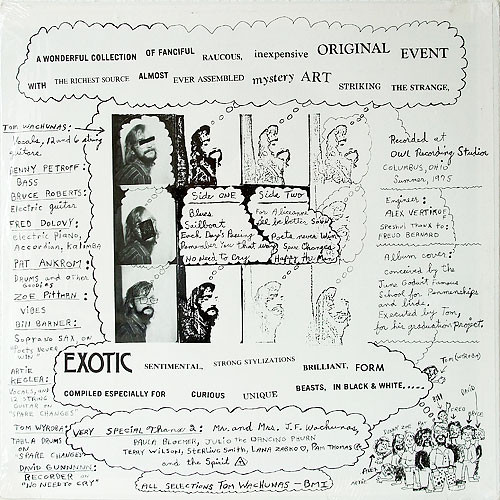 A WONDERFUL COLLECTION OF FANCIFUL RAUCOUS, inexpensive ORIGINAL EVENT
WITH THE RICHEST SOURCE ALMOST EVER ASSEMBLED mystery ART STRIKING THE STRANGE,
TOM WACHUNAS:
Vocals, 12 and 6 string
guitars
DENNY PETROFF:
BASS
BRUCE ROBERTS:
Electric guitar
FRED DOLOVY:
Electric Piano,
Accordian, Kalimba
PAT ANKROM:
DRUMS and other
Goodies
ZOE PITTMAN:
VIBES
BILL BARNER:
SOPRANO SAX, on
"Poets never
win"
ARTIE
KEGLER:
VOCALS, AND
12 STRING
GUITAR ON
"SPARE CHANGES"
TOM WYRDRA:
TABLA DRUMS
ON
"SPARE CHANGES"
DAVID
RECORDER on
"NO NEED TO CRY"
Side ONE
Blues
Sailboat
Each Day's Passing
Remember You that way
No Need To Cry
Side Two
be better Said
Poets never Win
Spare Changes
Happy the Man
Recorded at
OWL Recording Studios
COLUMBUS, OHIO
Summer, 1975
Engineer:
ALEX VERTIKOF
Special thanx to:
Album cover:
conceived by the
June Goduit Famous
School for Penmenships
and birds.
Executed by Tom,
for his graduation Project.
EXOTIC SENTIMENTAL, STRONG STYLIZATIONS BRILLIANT, FORM
COMPILED ESPECIALLY FOR CURIOUS UNIQUE BEASTS, IN BLACK & WHITE,....
VERY SPECIAL Thanx 2: Mr. and Mrs. J.F. Wachunas,
PAULA BLOCHER, JULIO the DANCING
TERRY WILSON, STERLING SMITH, LANA ZABKO, PAM THOMAS
and the Spirit
ALL SELECTIONS TOM WACHUNAS - BMI
TOM
PAT
DAVID
FRED
BRUCE
DENNY
ZOE
ARTIE